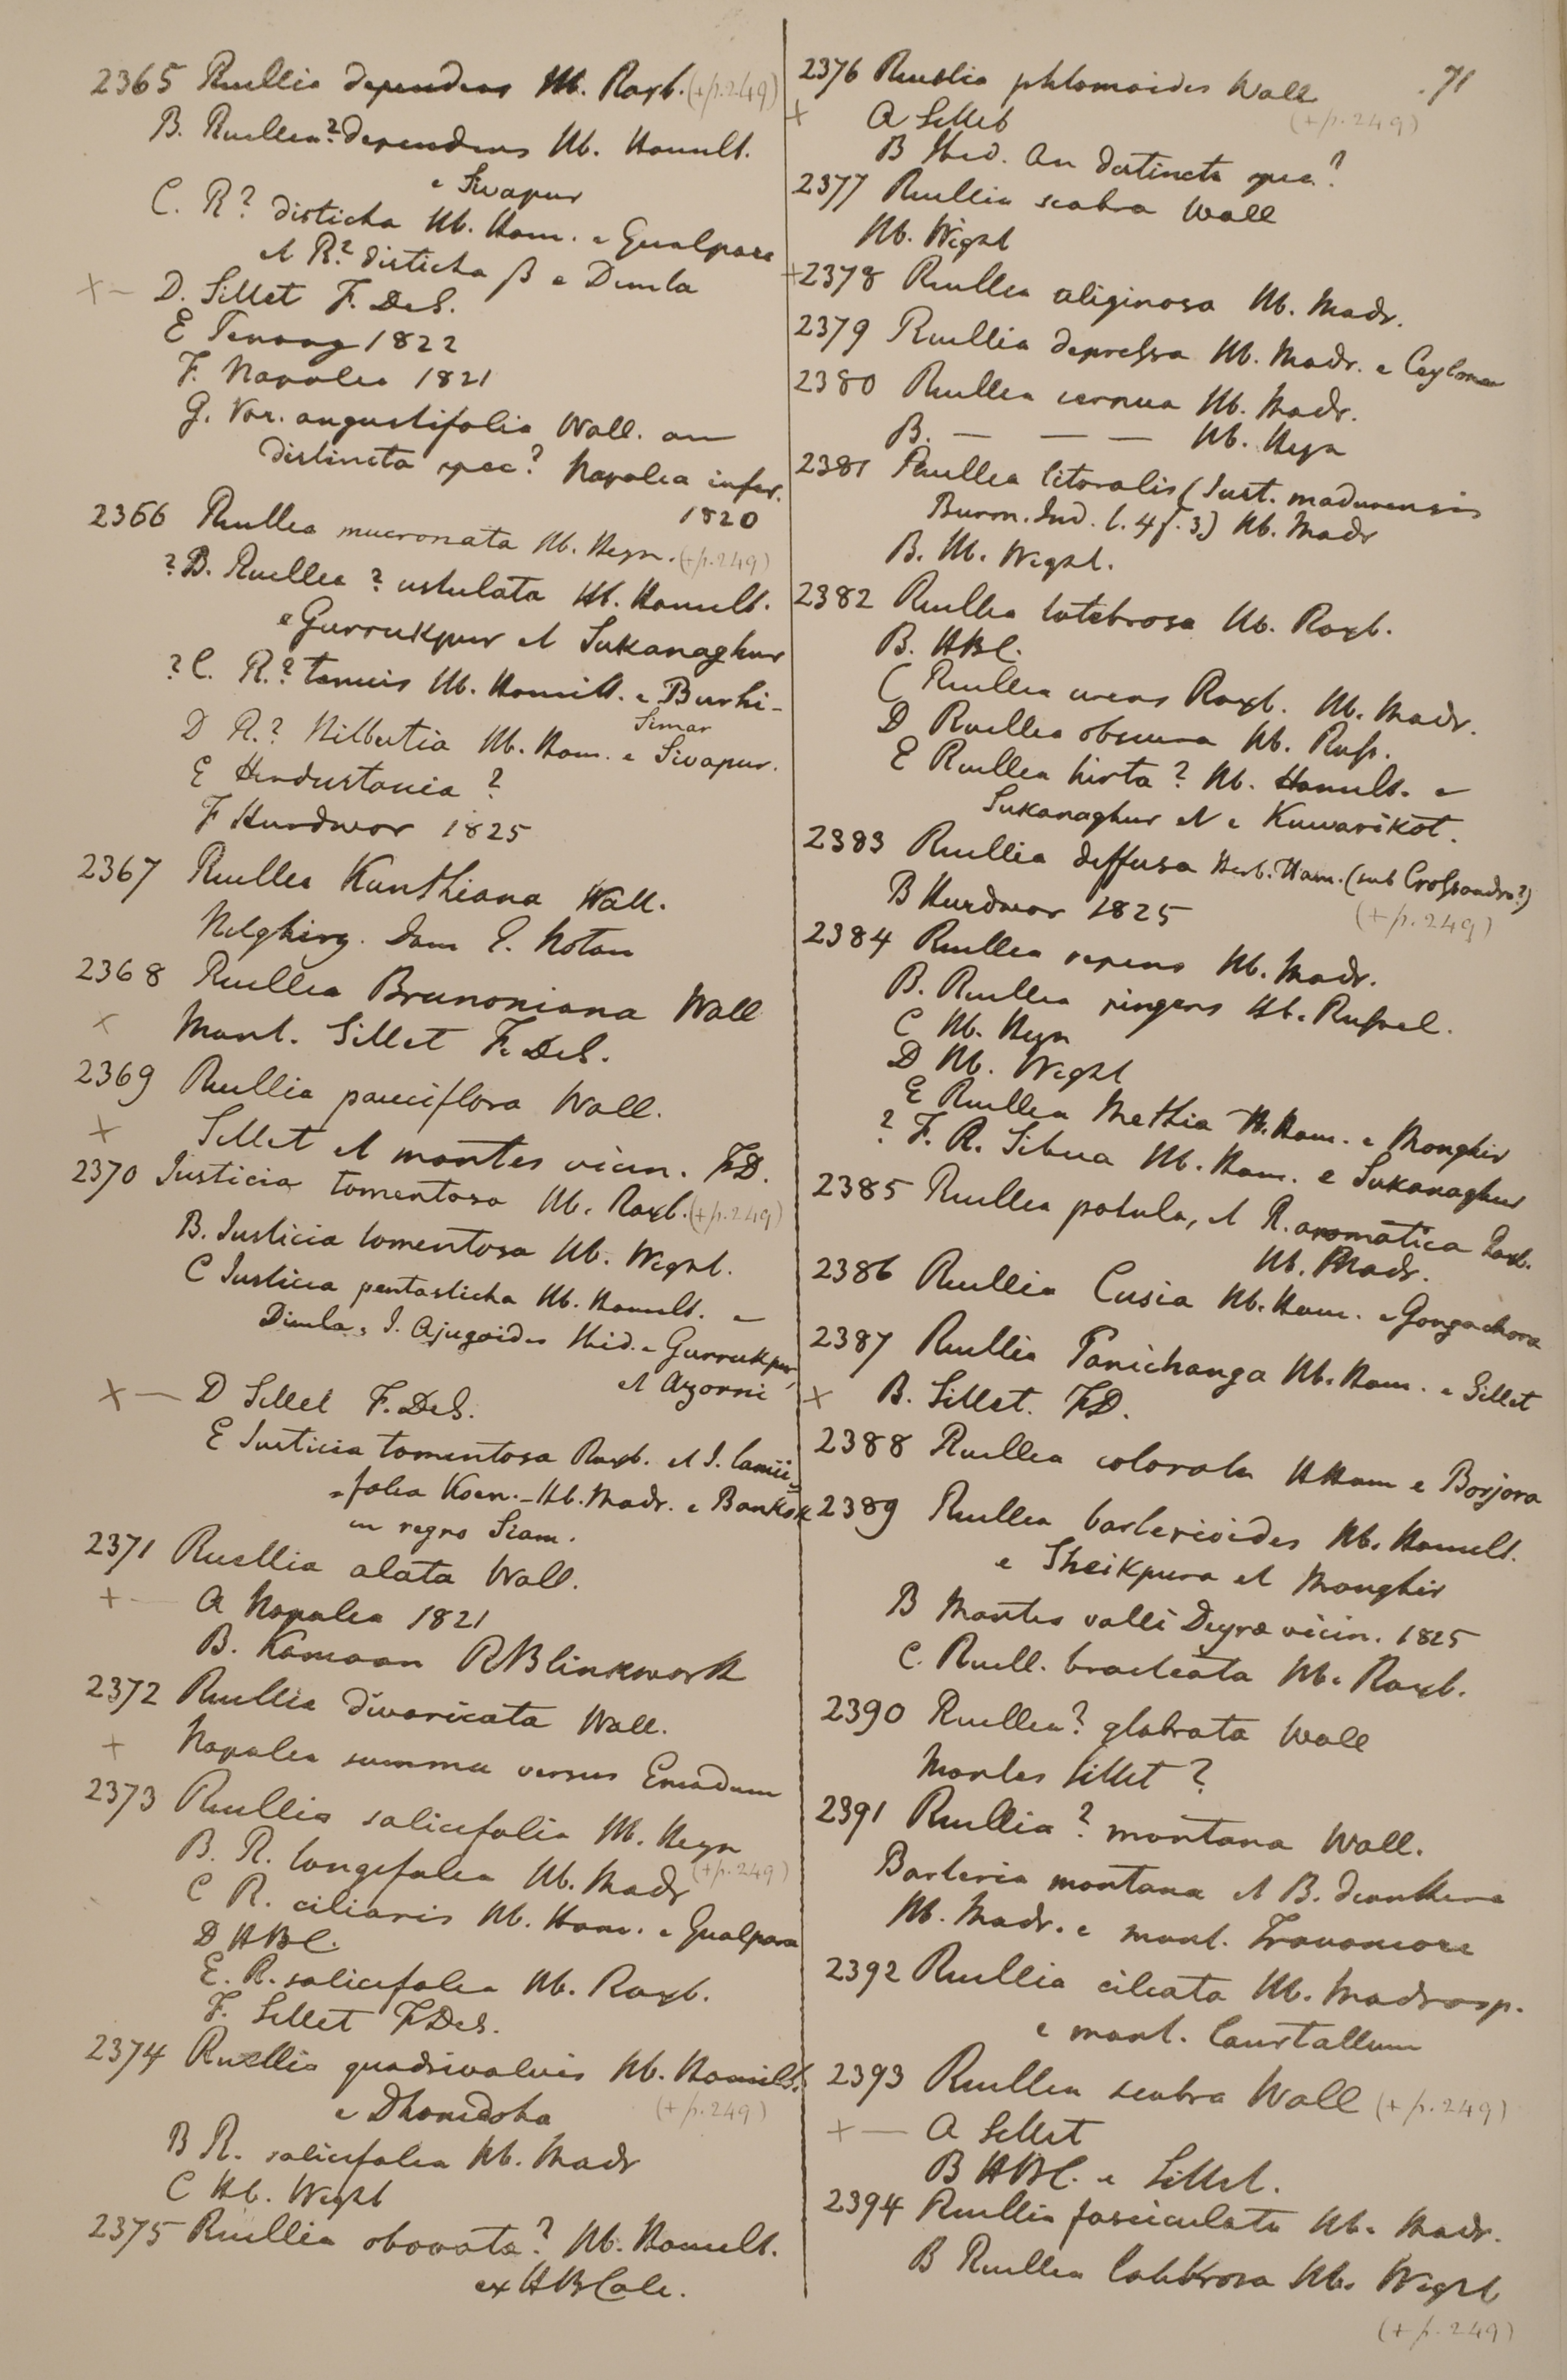 2365 Ruellia dependens Hb. Roxb. (+p. 249)
B. Ruellia? dependens Hb. Hamilt.
e Sivapur
C. R? disticha Hb. Ham. e Gualpara
et R? disticha β e Dimla
× – D. Sillet F. DeS.
E Penang 1822
F. Napalia 1821
G. Var. angustifolia Wall. an
distincta spec? Napalia infer.
1820
2366 Ruellia mucronata Hb. Heyn. (+p. 249)
? B. Ruellia ? ustulata Hb. Hamilt.
e Gurrukpur et Sukanaghur
? C. R. ? tenuis Hb. Hamilt. e Burhi-
Simar
D R. ? Hilbutia Hb. Ham. e Sivapur.
E Hindustania ?
F Hurdwar 1825
2367 Ruellia Kunthiana Wall.
Nelghiry. Dom E. Noton
2368 Ruellia Brunoniana Wall
× Mont. Sillet F. DeS.
2369 Ruellia pauciflora Wall.
× Sillet et montes vicin. FD.
2370 Justicia tomentosa Hb. Roxb. (+p. 249)
B. Justicia tomentosa Hb. Wight.
C Justicia pentasticha Hb. Hamilt. e
Dimla, J. Ajugoides Ibid. e Gurrukpur,
et Azorni
× — D Sillet F. DeS.
E Justicia tomentosa Roxb. et J. lamii-
-folia Koen. - Hb. Madr. e Bankok
in regno Siam.
2371 Ruellia alata Wall.
+ — A Napalia 1821
B. Kamaon RBlinkworth
2372 Ruellia divaricata Wall.
+ Napalia summa versus Emodum
2373 Ruellia salicifolia Hb. Heyn
(+p. 249)
B. R. longifolia Hb. Madr
C R. ciliaris Hb. Ham. e Gualpara
D HBC.
E. R. salicifolia Hb. Roxb.
F. Sillet FDeS.
2374 Ruellia quadrivalvis Hb. Hamilt.
e Dhamdoha (+p. 249)
B R. salicifolia Hb. Madr
C Hb. Wight
2375 Ruellia obovata? Hb. Hamilt.
ex HBCalc.
71
2376 Ruellia phlomoides Wall
(+p. 249)
× A Sillet
B Ibid. An distincta spec?
2377 Ruellia scabra Wall
Hb. Wight
+ 2378 Ruellia uliginosa Hb. Madr.
2379 Ruellia depressa Hb. Madr. e Ceylona
2380 Ruellia cernua Hb. Madr.
B. — — — Hb. Heyn
2381 Ruellia litoralis (Just. madurensis
Burm. Ind. t. 4 f. 3) Hb. Madr
B. Hb. Wight.
2382 Ruellia latebrosa Hb. Roxb.
B. HBC.
C Ruellia urens Roxb. Hb. Madr.
D Ruellia obscura Hb. Russ.
E Ruellia hirta ? Hb. Hamilt. e
Sukanaghur et e Kuwarikot.
2383 Ruellia diffusa Herb. Ham. (sub Crossandra?)
(+p. 249)
B Hurdwar 1825
2384 Ruellia repens Hb. Madr.
B. Ruellia ringens Hb. Russel.
C Hb. Heyn
D Hb. Wight
E Ruellia Methia H. Ham. e Monghir
? F. R. Sibua Hb. Ham. e Sukanaghur
2385 Ruellia patula, et R. aromatica Roxb.
Hb. Madr.
2386 Ruellia Cusia Hb. Ham. e Gongachora
2387 Ruellia Panichanga Hb. Ham. e Sillet
× B. Sillet. FD.
2388 Ruellia colorata HHam e Borjora
2389 Ruellia barlerioides Hb. Hamilt.
e Sheikpura et Monghir
B Montes valli Deyra vicin. 1825
C. Ruell. bracteata Hb. Roxb.
2390 Ruellia? glabrata Wall
Montes Sillet ?
2391 Ruellia ? montana Wall.
Barleria montana et B.
Hb. Madr. e mont. Travancore
2392 Ruellia ciliata Hb. Madrasp.
e mont. Courtallum
2393 Ruellia scabra Wall (+p. 249)
× — A Sillet
B HBC. e Sillet.
2394 Ruellia fasciculata Hb. Madr.
B Ruellia latebrosa Hb. Wight
(+p. 249)